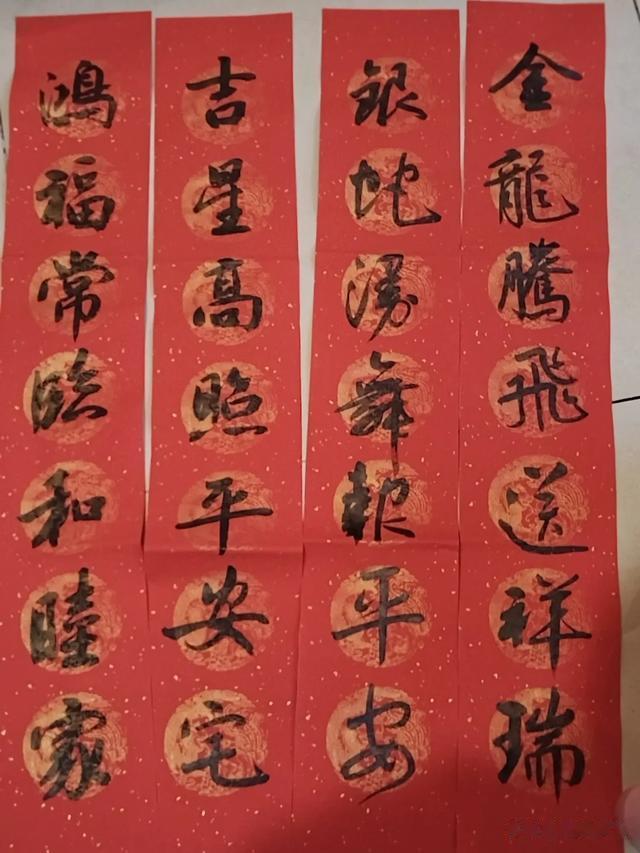 金龍騰飛送祥瑞
銀蛇湧舞報平安
吉星高照平安宅
鴻福常臨和睦家